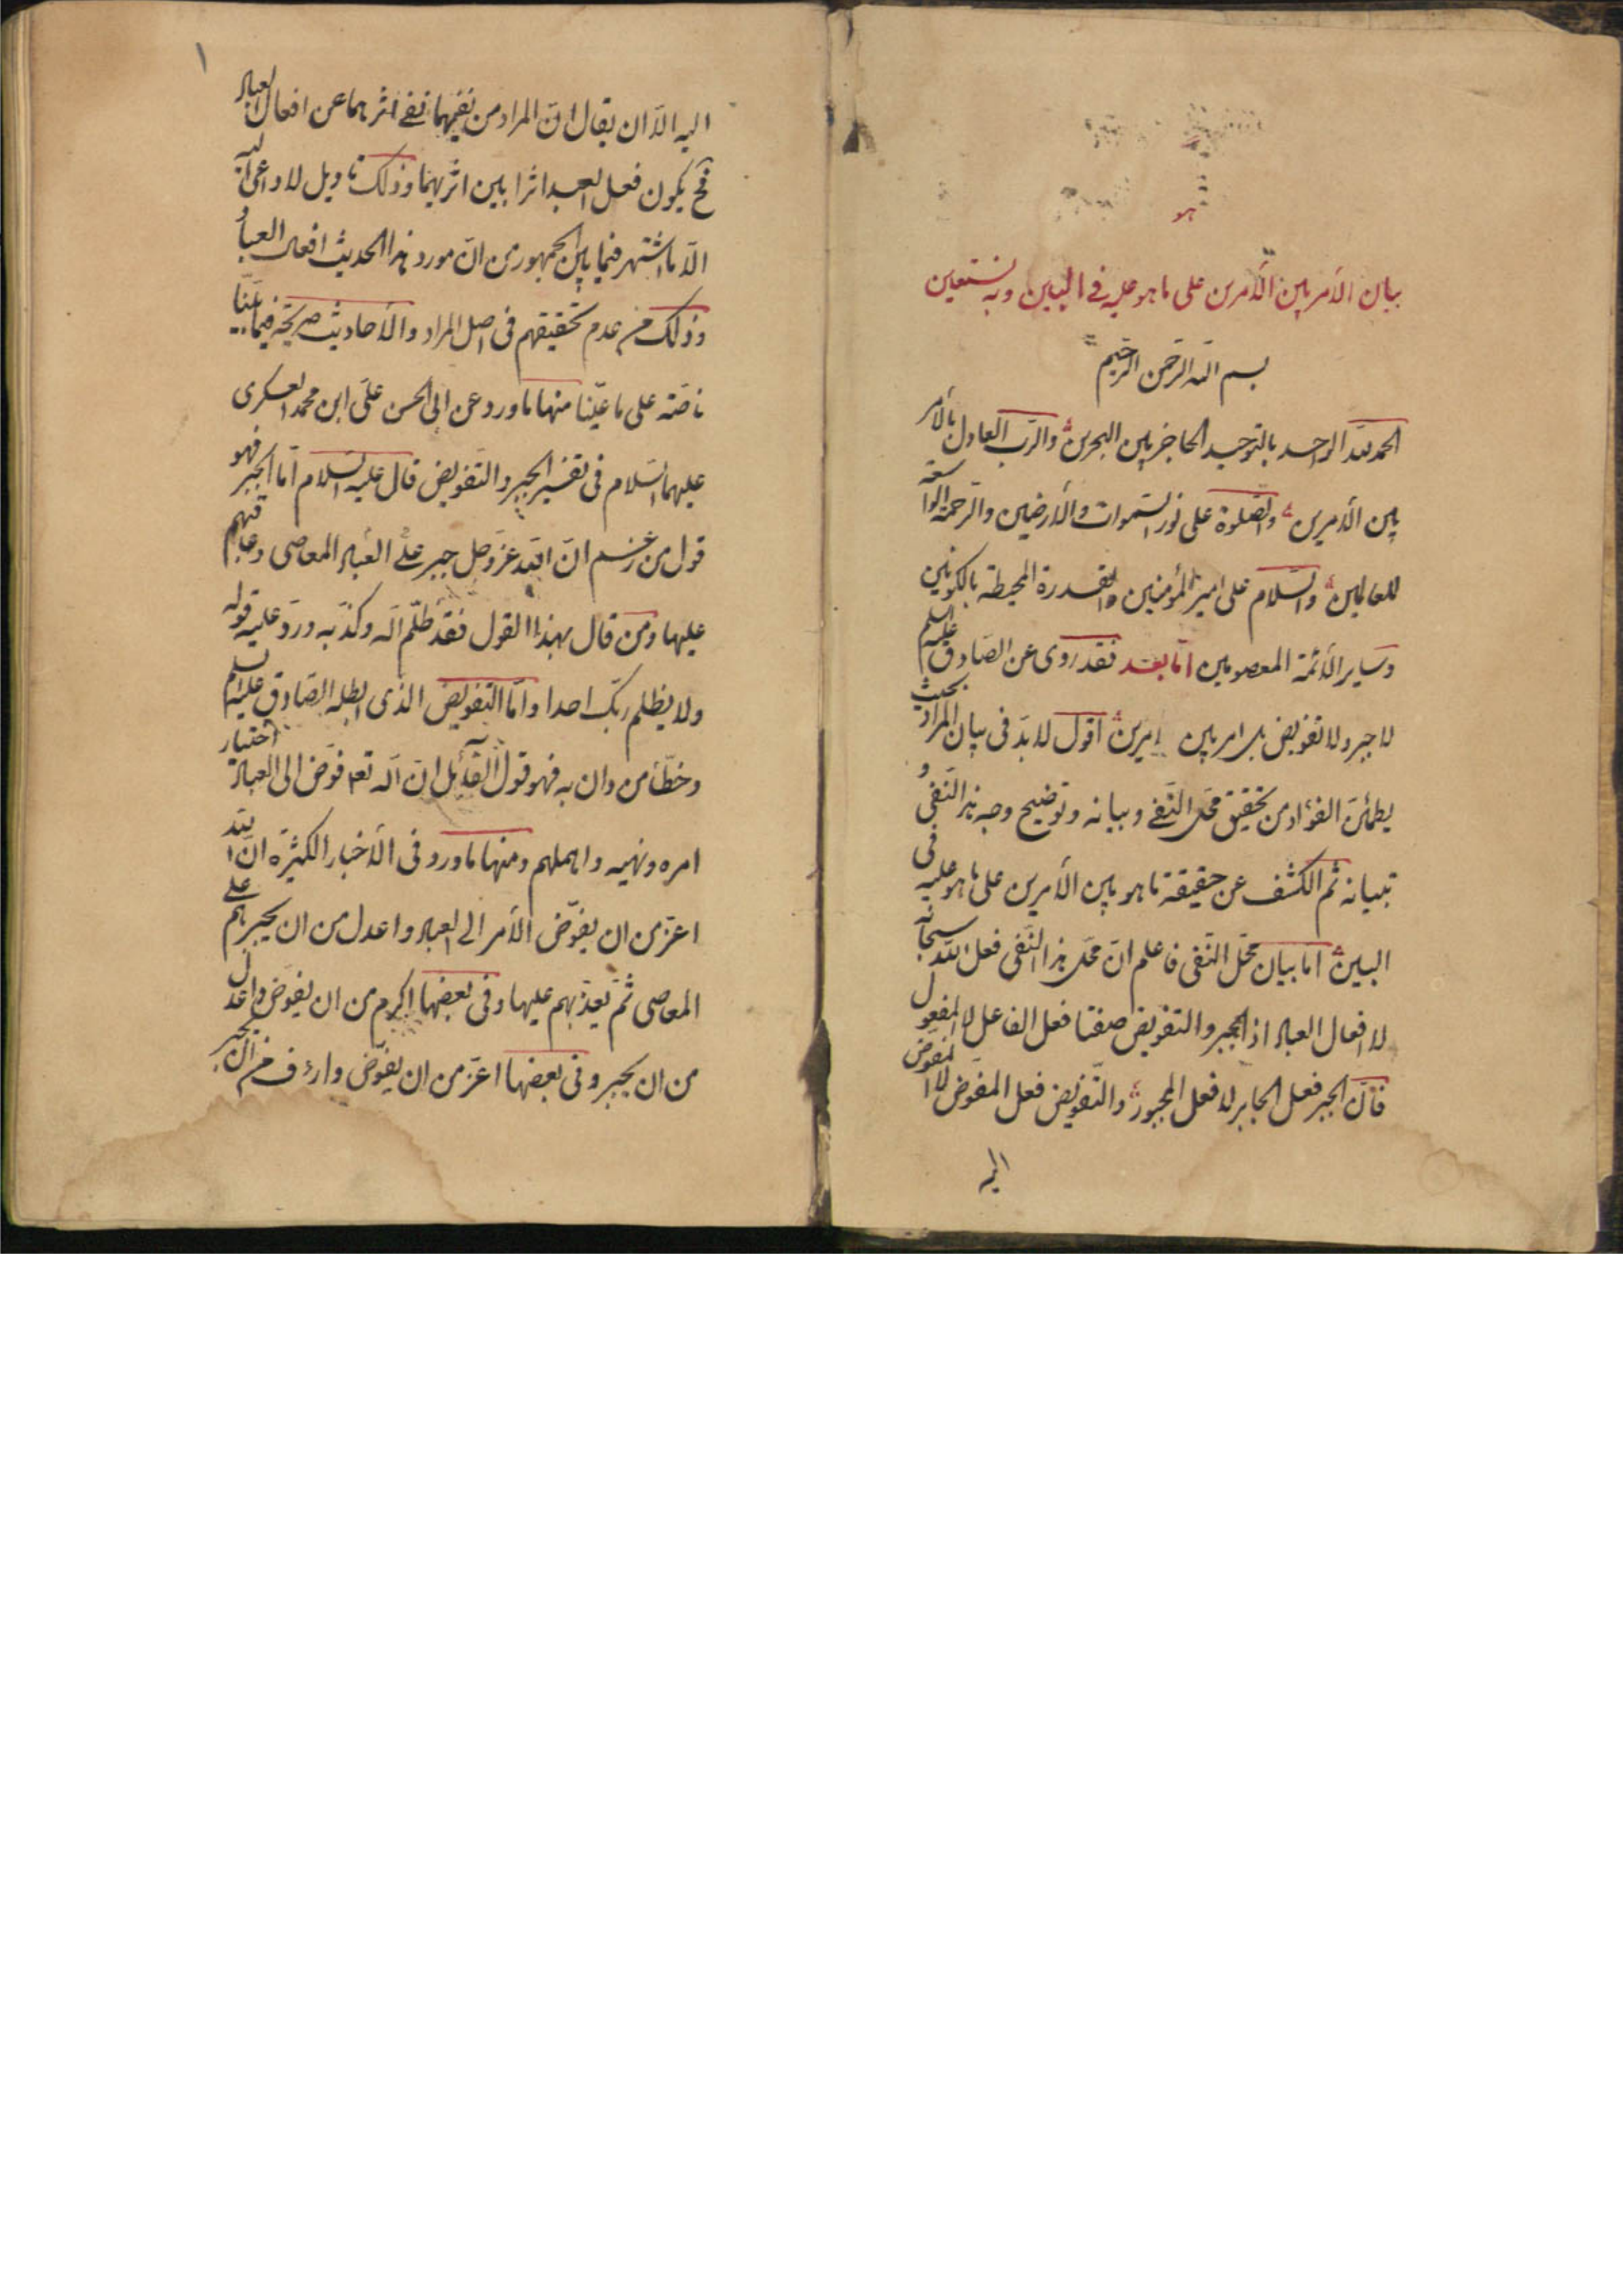 هو
بيان الأمر بين الأمرين على ما هو عليه في البين وبه نستعين
بسم الله الرحمن الرحيم
الحمد لله الواحد بالتوحيد الحاجز بين البحرين والرّب العادل بالأمر
بين الأمرين والصلوة على نور السموات والأرضين والرّحمة الواسعة
للعالمين والسّلام على امير المؤمنين والقدرة المحيطة بالكونين
وساير الأئمة المعصومين امّا بعد فقد روى عن الصّادق عليه السلم
لا جبر ولا تفويض بل امر بين امرين اقول لا بدّ فى بيان المراد بحيث
يطمئنّ الفؤاد من تحقيق محلّ النّفى وبيانه وتوضيح وجه هذا النّفى و
تبيانه ثم الكشف عن حقيقة ما هو بين الأمرين على ما هو عليه فى
البين امّا بيان محلّ النّفى فاعلم انّ محلّ هذا النّفى فعل الله سبحانه
لا افعال العباد اذ الجبر والتفويض صفتا فعل الفاعل لا المفعول
فانّ الجبر فعل الجابر لا فعل المجبور والتّفويض فعل المفوّض لا المفوّض
اليه
١
اليه الّا ان يقال انّ المراد من نفيهما نفى اثرهما عن افعال العباد
فح يكون فعل العبد اثرا بين اثريهما وذلك تاويل لا داعى اليه
الّا ما اشتهر فيما بين الجمهور من انّ مورد هذا الحديث افعال العباد و
ذلك من عدم تحقيقهم فى اصل المراد والأحاديث صريحة فيما عيّنا
ناصّة على ما عيّنا منها ما ورد عن ابى الحسن علىّ ابن محمد العسكرى
عليهما السّلام فى تفسير الجبر والتّفويض قال عليه السّلام امّا الجبر فهو
قول من زعم انّ الله عزّ وجل جبر على العباد المعاصى وعاقبهم
عليها ومن قال بهذا القول فقد ظلّم الله وكذّبه وردّ عليه قوله
ولا يظلم ربّك احدا وامّا التفويض الذى ابطله الصّادق عليه السلم
وخطّأ من دان به فهو قول القائل انّ الله تعه فوّض الى العباد اختيار
امره ونهيه واهملهم ومنها ما ورد فى الأخبار الكثيرة انّ الله
اعزّ من ان يفوّض الأمر الى العباد واعدل من ان يجبرهم على
المعاصى ثمّ يعذّبهم عليها وفى بعضها اكرم من ان يفوّض واعدل
من ان يجبر وفى بعضها اعزّ من ان يفوّض وارءف من ان يجبر